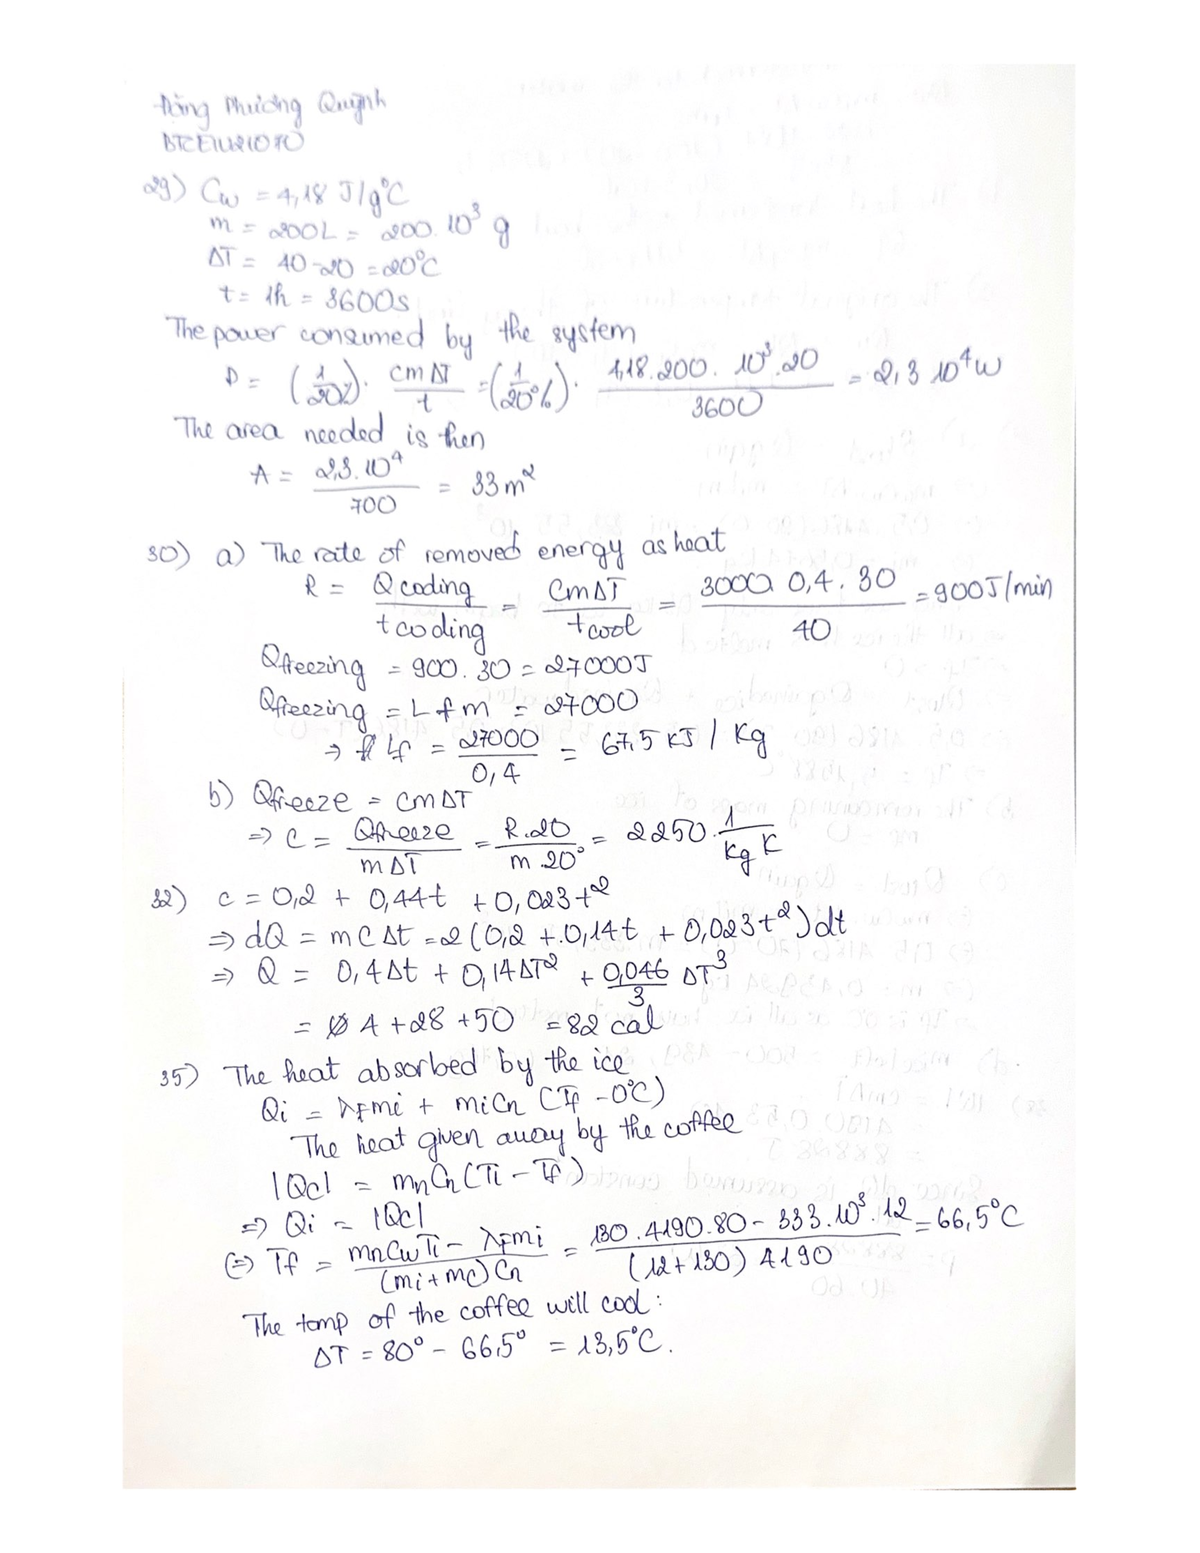 Đặng Phương Quỳnh
BTCEIU21070
29) Cw = 4,18 J/g°C
m = 200L = 200. 10³ g
ΔT = 40-20 = 20°C
t = 1h = 3600s
The power consumed by the system
P = (1/20%). cmΔT/t = (1/20%). 4,18.200. 10³.20/3600 = 2,3 10⁴ W
The area needed is then
A = 2,3. 10⁴/700 = 33 m²
30) a) The rate of removed energy as heat
R = Qcooling/tcooling = CmΔT/tcool = 3000. 0,4. 30/40 = 900 J/min
Qfreezing = 900. 30 = 27000J
Qfreezing = Lfm = 27000
⇒ Lf = 27000/0,4 = 67,5 kJ / Kg
b) Qfreeze = cmΔT
⇒ C = Qfreeze/mΔT = R.20/m 20° = 2250. 1/kg K
32) c = 0,2 + 0,44t + 0,023t²
⇒ dQ = mcΔt = 2 (0,2 + 0,14t + 0,023t²) dt
⇒ Q = 0,4Δt + 0,14ΔT² + 0,046/3 ΔT³
= 4 + 28 + 50 = 82 cal
35) The heat absorbed by the ice
Qi = λFmi + miCn (Tf - 0°C)
The heat given away by the coffee
|Qc| = mnCn (Ti - Tf)
⇒ Qi = |Qc|
(=) Tf = mnCwTi - λFmi/(mi + mc) Cn = 130. 4190. 80 - 333. 10³. 12/(12 + 130) 4190 = 66,5°C
The temp of the coffee will cool :
ΔT = 80° - 66,5° = 13,5°C.